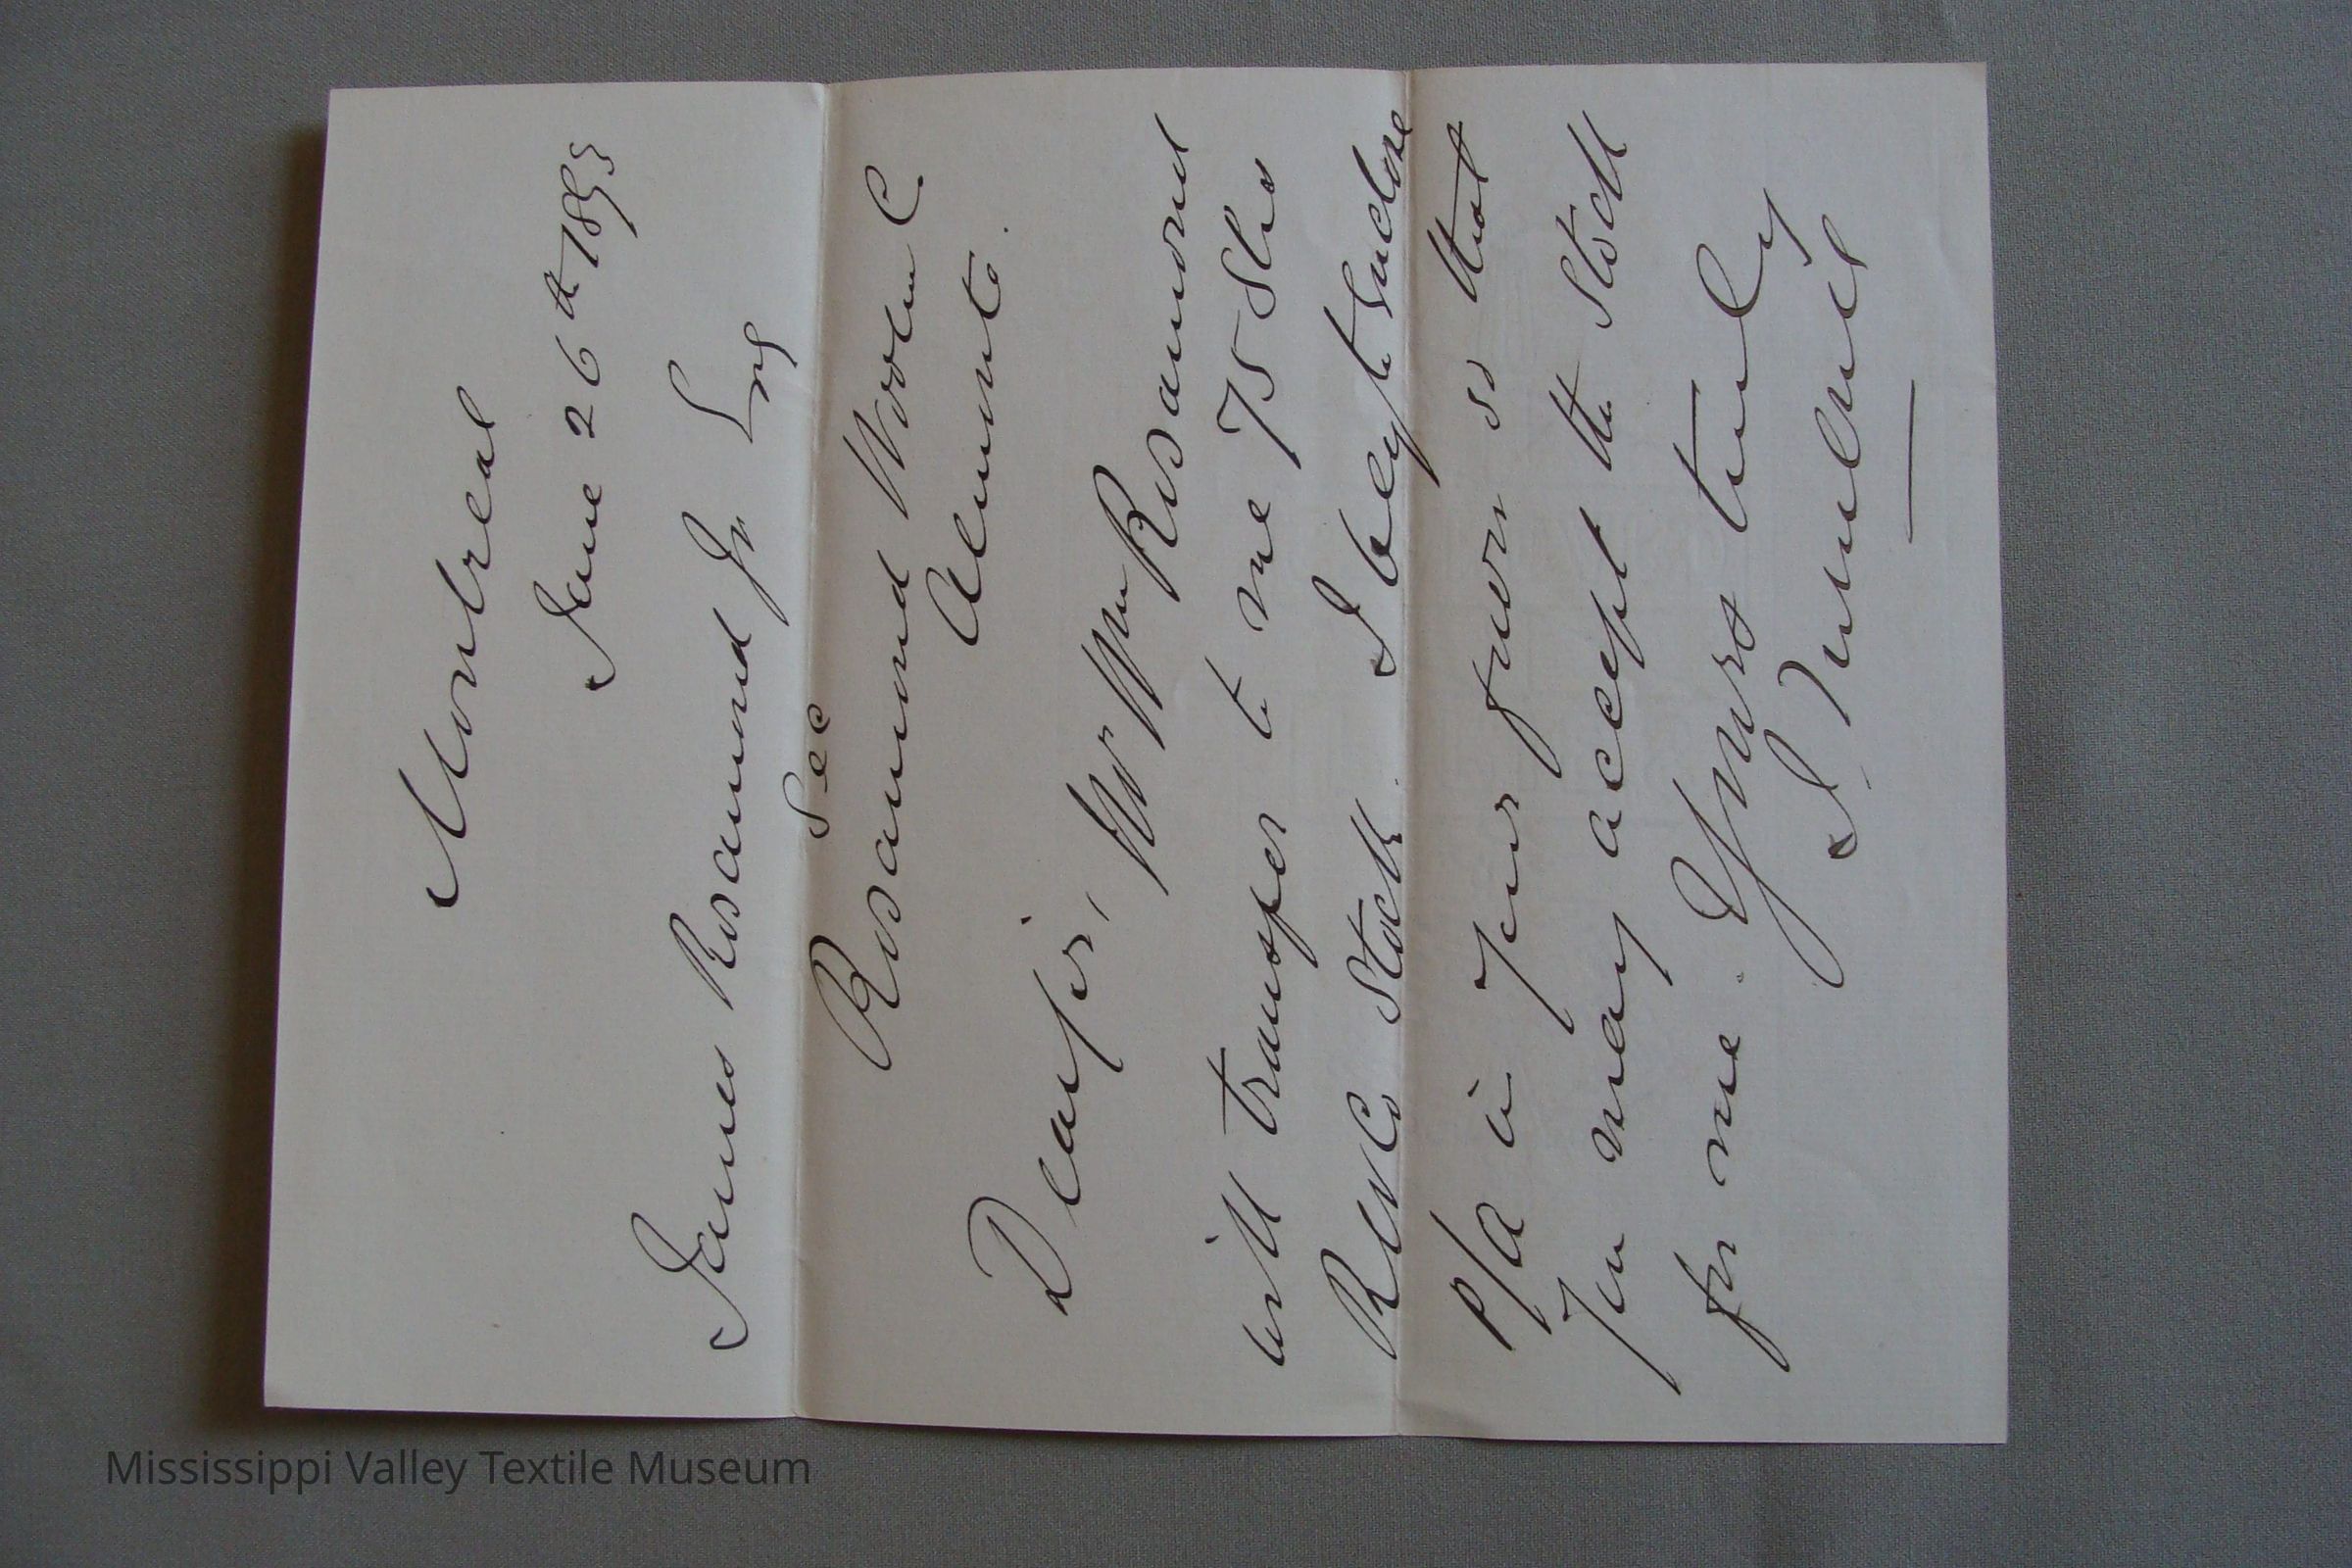 Montreal
June 26th 1893
James Rosamond Jr Esq
Sec
Rosamond Woolen C.
Almonte.
Dear Sir, Mr Wm Rosamond
will transfer to me 75 Shs
RWCo Stock. I beg to Enclose
P/A in your favor so that
you may accept the Stock
for me. Yours truly
Mississippi Valley Textile Museum